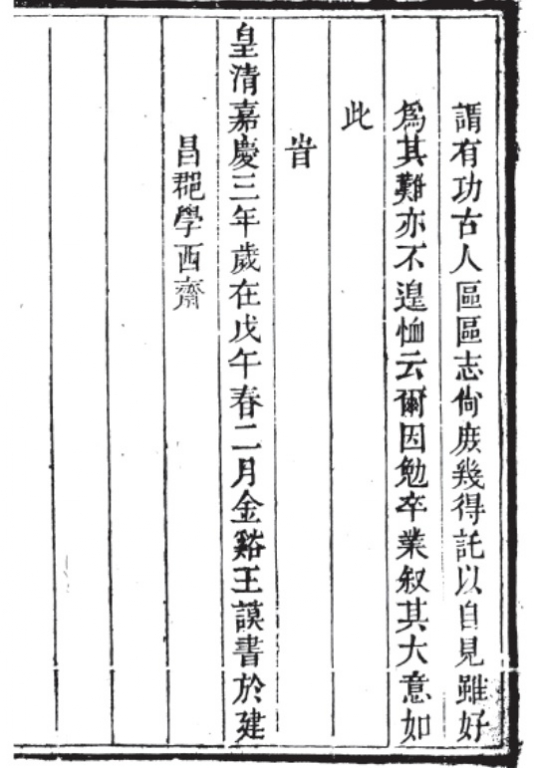 謂有功古人區區志尙庻幾得託以自見雖好
爲其難亦不遑恤云爾因勉卒業叙其大意如
此
旹
皇清嘉慶三年歲在戊午春二月金谿王謨書於建
昌郡學西齋